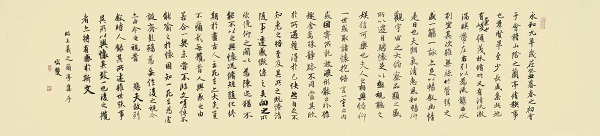 永和九年歲在癸丑暮春之初會
于會稽山陰之蘭亭脩稧事
也群賢畢至少長咸集此地
有崇山峻領茂林脩竹又有清流激
湍暎帶左右引以為流觴曲水
列坐其次雖無絲竹管弦之
盛一觴一詠亦足以暢敘幽情
是日也天朗氣清惠風和暢仰
觀宇宙之大俯察品類之盛
所以遊目騁懷足以極視聽之
娛信可樂也夫人之相與俯仰
一世或取諸懷抱悟言一室之內
或因寄所託放浪形骸之外雖
趣舍萬殊靜躁不同當其欣
於所遇暫得於己快然自足不
知老之將至及其所之既惓情
隨事遷感慨係之矣向之所
欣俛仰之閒以為陳迹猶不
能不以之興懷況脩短隨化終
期於盡古人云死生亦大矣豈
不痛哉每攬昔人興感之由
若合一契未嘗不臨文嗟悼不
能喻之於懷固知一死生為虛
誕齊彭殤為妄作後之視今
亦由今之視昔悲夫故列
敘時人錄其所述雖世殊事
異所以興懷其致一也後之攬
者亦將有感於斯文
臨王羲之蘭亭集序